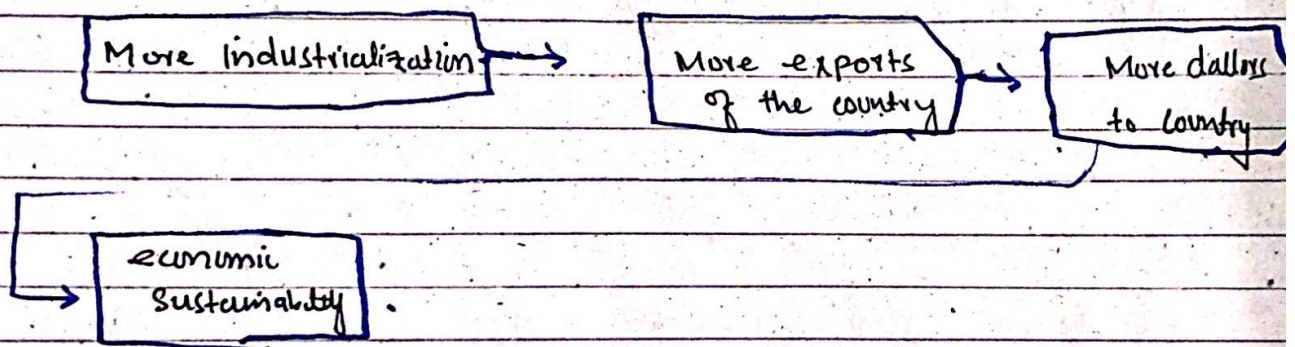 More industrialization
More exports
of the country
More dallors
to country
economic
Sustainability